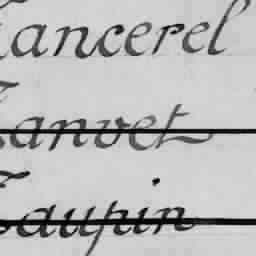 Tancerel
Tanvet
Taupin